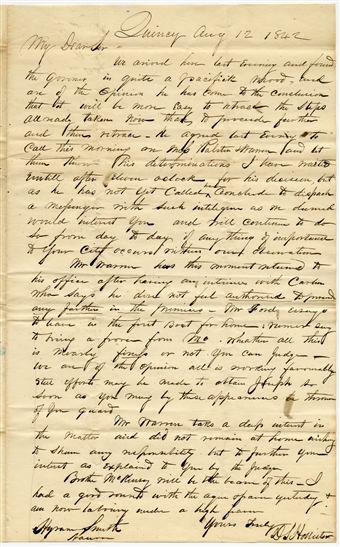 Quincy Aug 12 1842
My Dear Sir
We arived here last Evening and found
the Governor in quite a pacifick Mood - and
are of the Opinion he has come to the conclusion
that it will be more easy to retrace the Steps
allready taken Now than to proceed further
and then retrace - He agreed last Evening to
Call this morning on Mess Ralston Warren and let
them know his determinations I have waited
untill after eleven oclock for his decision but
as he has not yet Called Concluded to dispach
a Messenger with Such inteligence as we deemed
would interest You and will continue to do
So from day to day if any thing of importance
to Your City occurs within our observation
Mr Warren has this moment returned to
his office after having an interview with Carlin
Who Says he does not feel authorised to proceed
any farther in the Premises - Mr Ford
to leave in the first Boat for home Rumor Says
to bring a force from Mo. Whether all this
is Nearly or not You Can Judge -
We are of the opinion all is working favourably
Still efforts may be made to obtain Joseph So
Soon as You may by these appearances be thrown
of Your guard
Mr Warren takes a deep interest in
the Matter and did not remain at home wishing
to Shun any responsibility but to further Your
interest as explained to You by the Judge
Brother McKinsey will be the bearer of this - I
had a good round with the ague again yesterday &
am now labouring under a high fever
Yours Truly
Hyrum Smith D S Hollister
Nauvoo